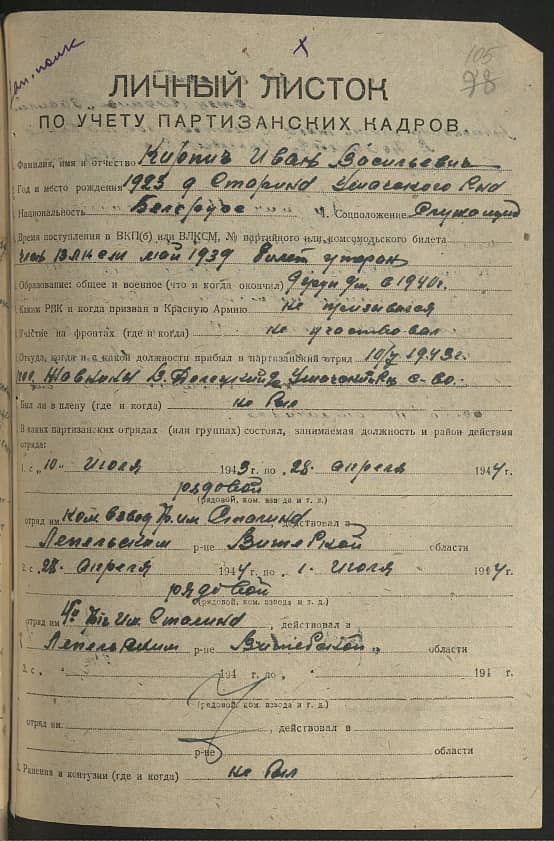 105
98
ЛИЧНЫЙ ЛИСТОК
ПО УЧЕТУ ПАРТИЗАНСКИХ КАДРОВ
Фамилия, имя и отчество Кирпич Иван Васильевич
Год и место рождения 1923 д Старина Ушачского Р-на
Национальность Белорус Соцположение Служащий
Время поступления в ВКП(б) или ВЛКСМ, № партийного или комсомольского билета
член ВЛКСМ май 1939 билет утерян
Образование: общее и военное (что и когда окончил) в 1940 г.
Каким РВК и когда призван в Красную Армию не призывался
Участие на фронтах (где и когда) не участвовал
Откуда, когда и с какой должности прибыл в партизанский отряд 10/7 1943 г.
Был ли в плену (где и когда) не был
В каких партизанских отрядах (или группах) состоял, занимаемая должность и район действия
отряда:
1. с „10" Июля 1943 г. по 28. апреля 1944 г.
рядовой
(рядовой, ком. взвода и т. д.)
отряд им. ком. взвод Бр. им Сталина действовал в
Лепельским р-не Витебской области
2. с „28. апреля 1944 г. по „1. Июля 1944 г.
рядовой
(рядовой, ком. взвода и т. д.)
отряд им. им. Сталина, действовал в
Лепельским р-не Витебской области
3. с „ " 194 г. по „ " 194 г.
(рядовой, ком. взвода и т. д.)
отряд им. , действовал в
р-не области
Ранения и контузии (где и когда) не был